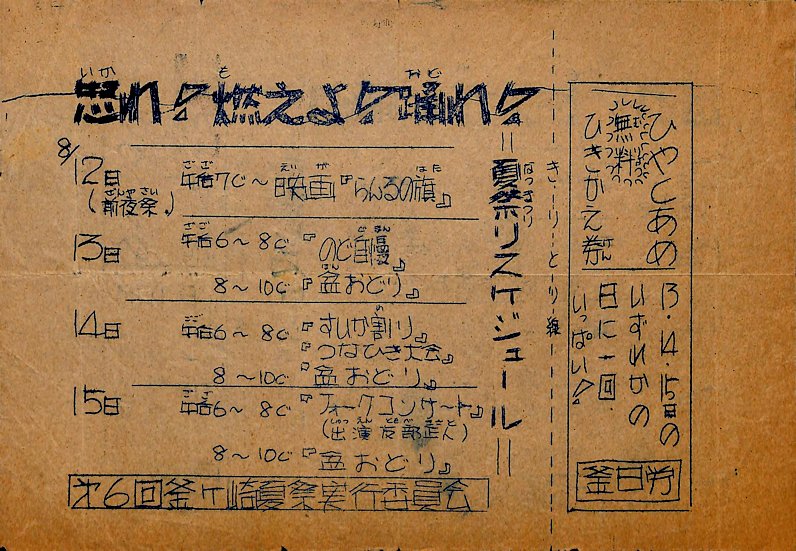 怒れ!燃えよ!踊れ!
=夏祭りスケジュール=
8/12日 午后7じ〜 映画『らんるの旗』
(前夜祭)
13日 午后6〜8じ『のど自慢』
8〜10じ『盆おどり』
14日 午后6〜8じ『すいか割り』
『つなひき大会』
8〜10じ『盆おどり』
15日 午后6〜8じ『フォークコンサート』
(出演友部正人)
8〜10じ『盆おどり』
第6回釜ヶ崎夏祭実行委員会
きーりーとーりー線
ひやしあめ
無料
ひきかえ券
13・14・15日の
いずれかの
日に一回
いっぱい!
釜日労